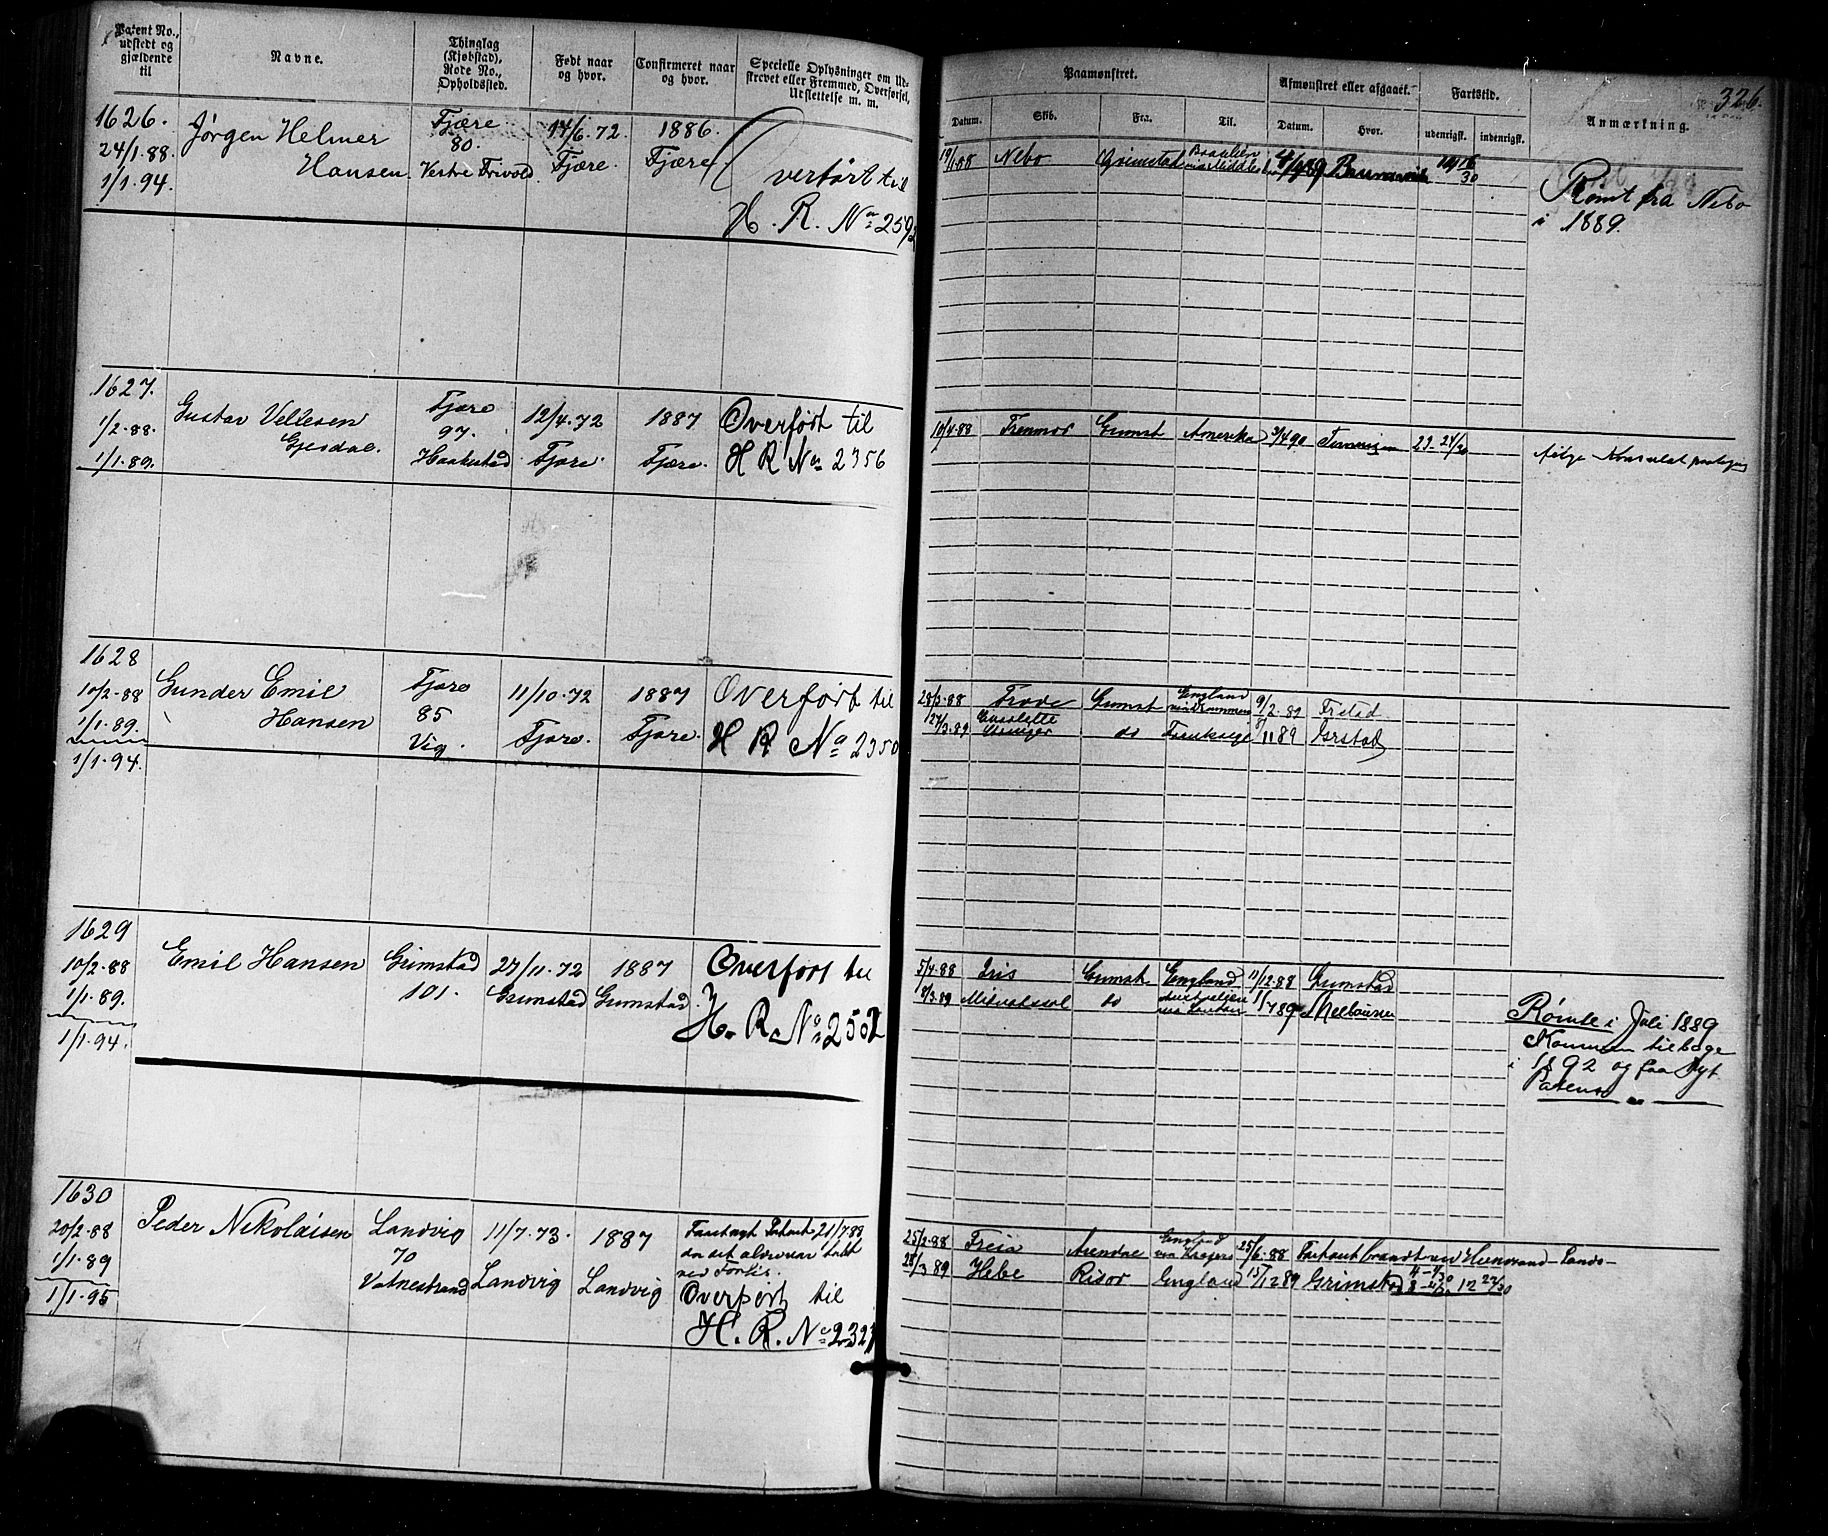 Patent No.,
udstedt og
gjældende
til
Navne.
Thinglag
(Kjøbstad),
Rode No.,
Opholdssted.
Født naar
og hvor.
Confirmeret naar
og hvor.
Specielle Oplysninger om Ud-
skrevet eller Fremmed, Overførsel,
Udslettelse m. m.
1626.
24/1.88.
1/1.94.
Jørgen Helmer
Hansen.
Fjære
80.
Vestre Frivold
14/6.72.
Fjære.
1886.
Fjære
Overført til
H. R. No 259
1627.
1/2-88.
1/1.89.
Gustav Vellesen
Gjesdal.
Fjære
97.
Haakestad
12/4.72
Fjære.
1887
Fjære.
Overført til
H R No 2356
1628
10/2-88
1/1.89.
1/1.94.
Gunder Emil
Hansen
Fjære
85
Vig.
11/10.72
Fjære.
1887
Fjære.
Overført til
H R No 2350
1629
10/2-88
1/1.89.
1/1.94.
Emil Hansen
Grimstad
101.
27/11.72
Grimstad
1887
Grimstad.
Overført til
H. R. No 2502
1630
20/2-88
1/1-89
1/1-95
Peder Nikolaisen
Landvig
70
Vatnestrand
11/7.73.
Landvig
1887
Landvig
21/7.88
Overført til
H. R. No 232
326.
Paamønstret.
Afmønstret eller afgaaet.
Fartstid.
Anmærkning.
Datum.
Skib.
Fra.
Til.
Datum.
Hvor.
udenrigsk.
indenrigsk.
19/1.88 Nebo Grimstad Brasilien
Rømt fra Nebo
i 1889.
10/4.88 Grimst Amerika 3/4 90 23 24/30
28/3.88 Grimst England 9/2.89
27/3.89 do
5/4.88 Iris Grimst England 11/12.88 Grimstad
8/3.89 do
Rømte i Juli 1889
Kommen tilbage
i 1892 og faa Nyt
Patent
25/2.88 Freia Arendal England 25/6.88
28/3 89 Hebe Risør England 15/12 89 Grimstad 12 22/30